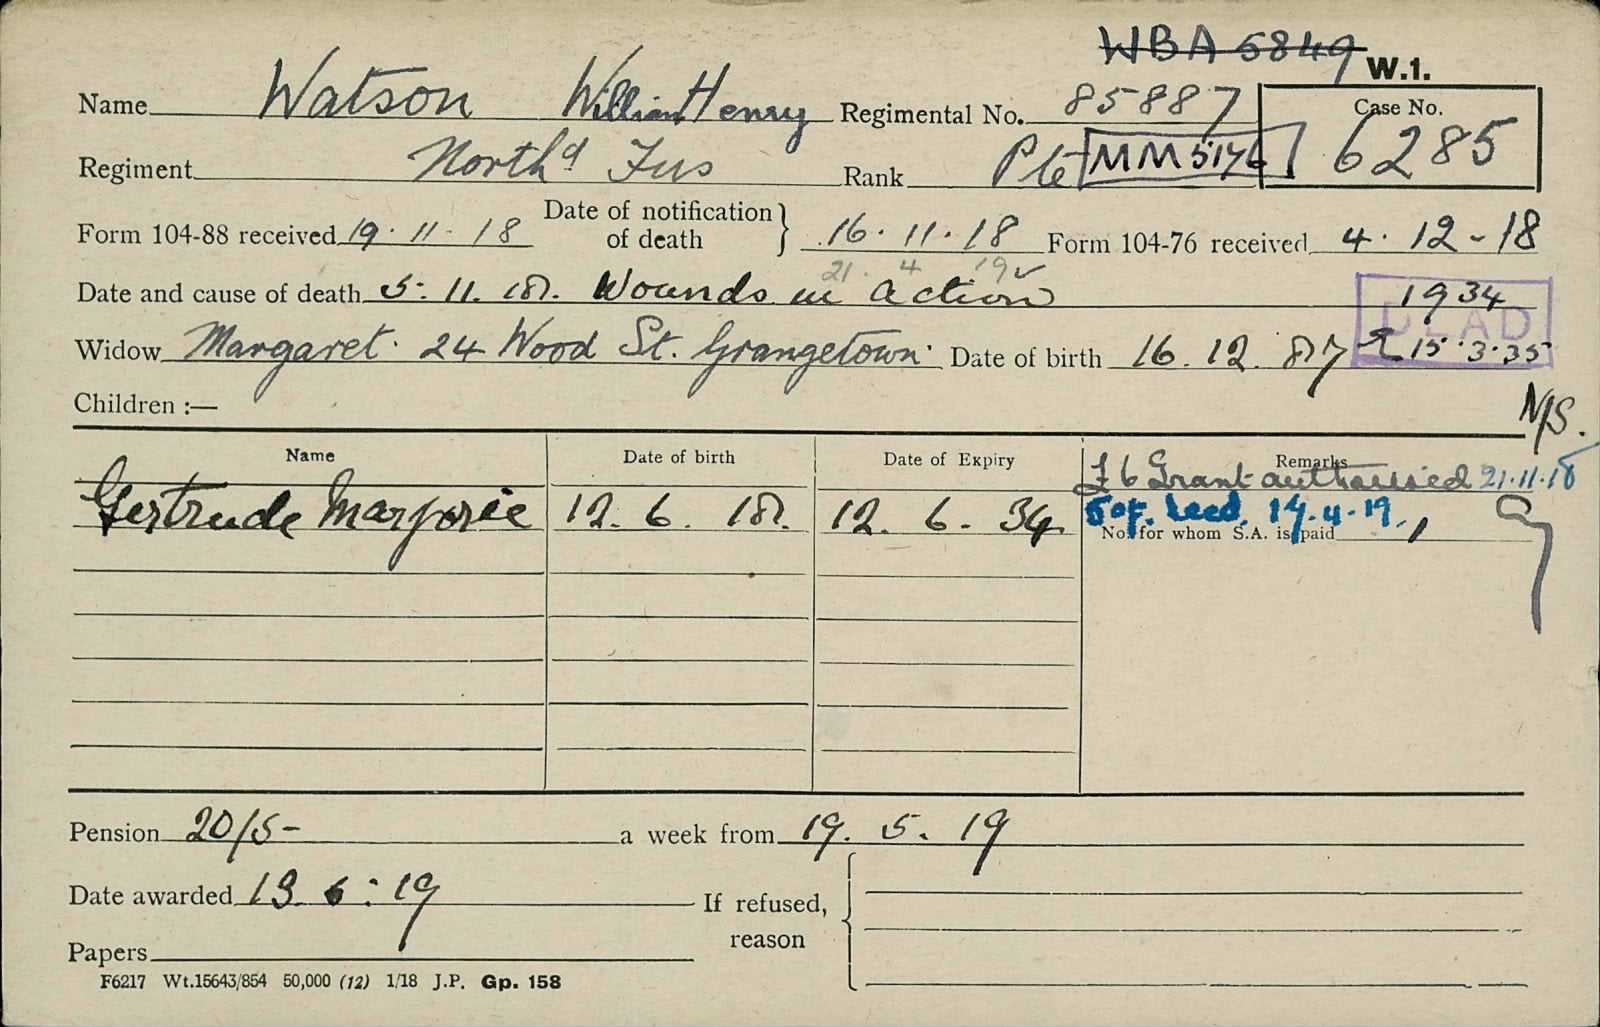 WBA 5849 W.1.
Name Watson William Henry Regimental No. 85887 Case No. 6285
Regiment Northd Fus Rank Pte MM5176
Form 104-88 received 19. 11. 18 Date of notification of death } 16. 11. 18 Form 104-76 received 4. 12 - 18
21. 4 19
Date and cause of death 5. 11. 18. Wounds in action 1934
DEAD
Widow Margaret. 24 Wood St. Grangetown. Date of birth 16. 12. 87 15.3.35
Children :— N/S.
Name Date of birth Date of Expiry Remarks
£6 Grant authorised 21.11.18
Gertrude Marjorie 12. 6. 18. 12. 6. 34.
No. for whom S.A. is paid 1
Pension 20/5- a week from 19. 5. 19
Date awarded 13. 6: 19 If refused, reason
Papers
F6217 Wt.15643/854 50,000 (12) 1/18 J.P. Gp. 158